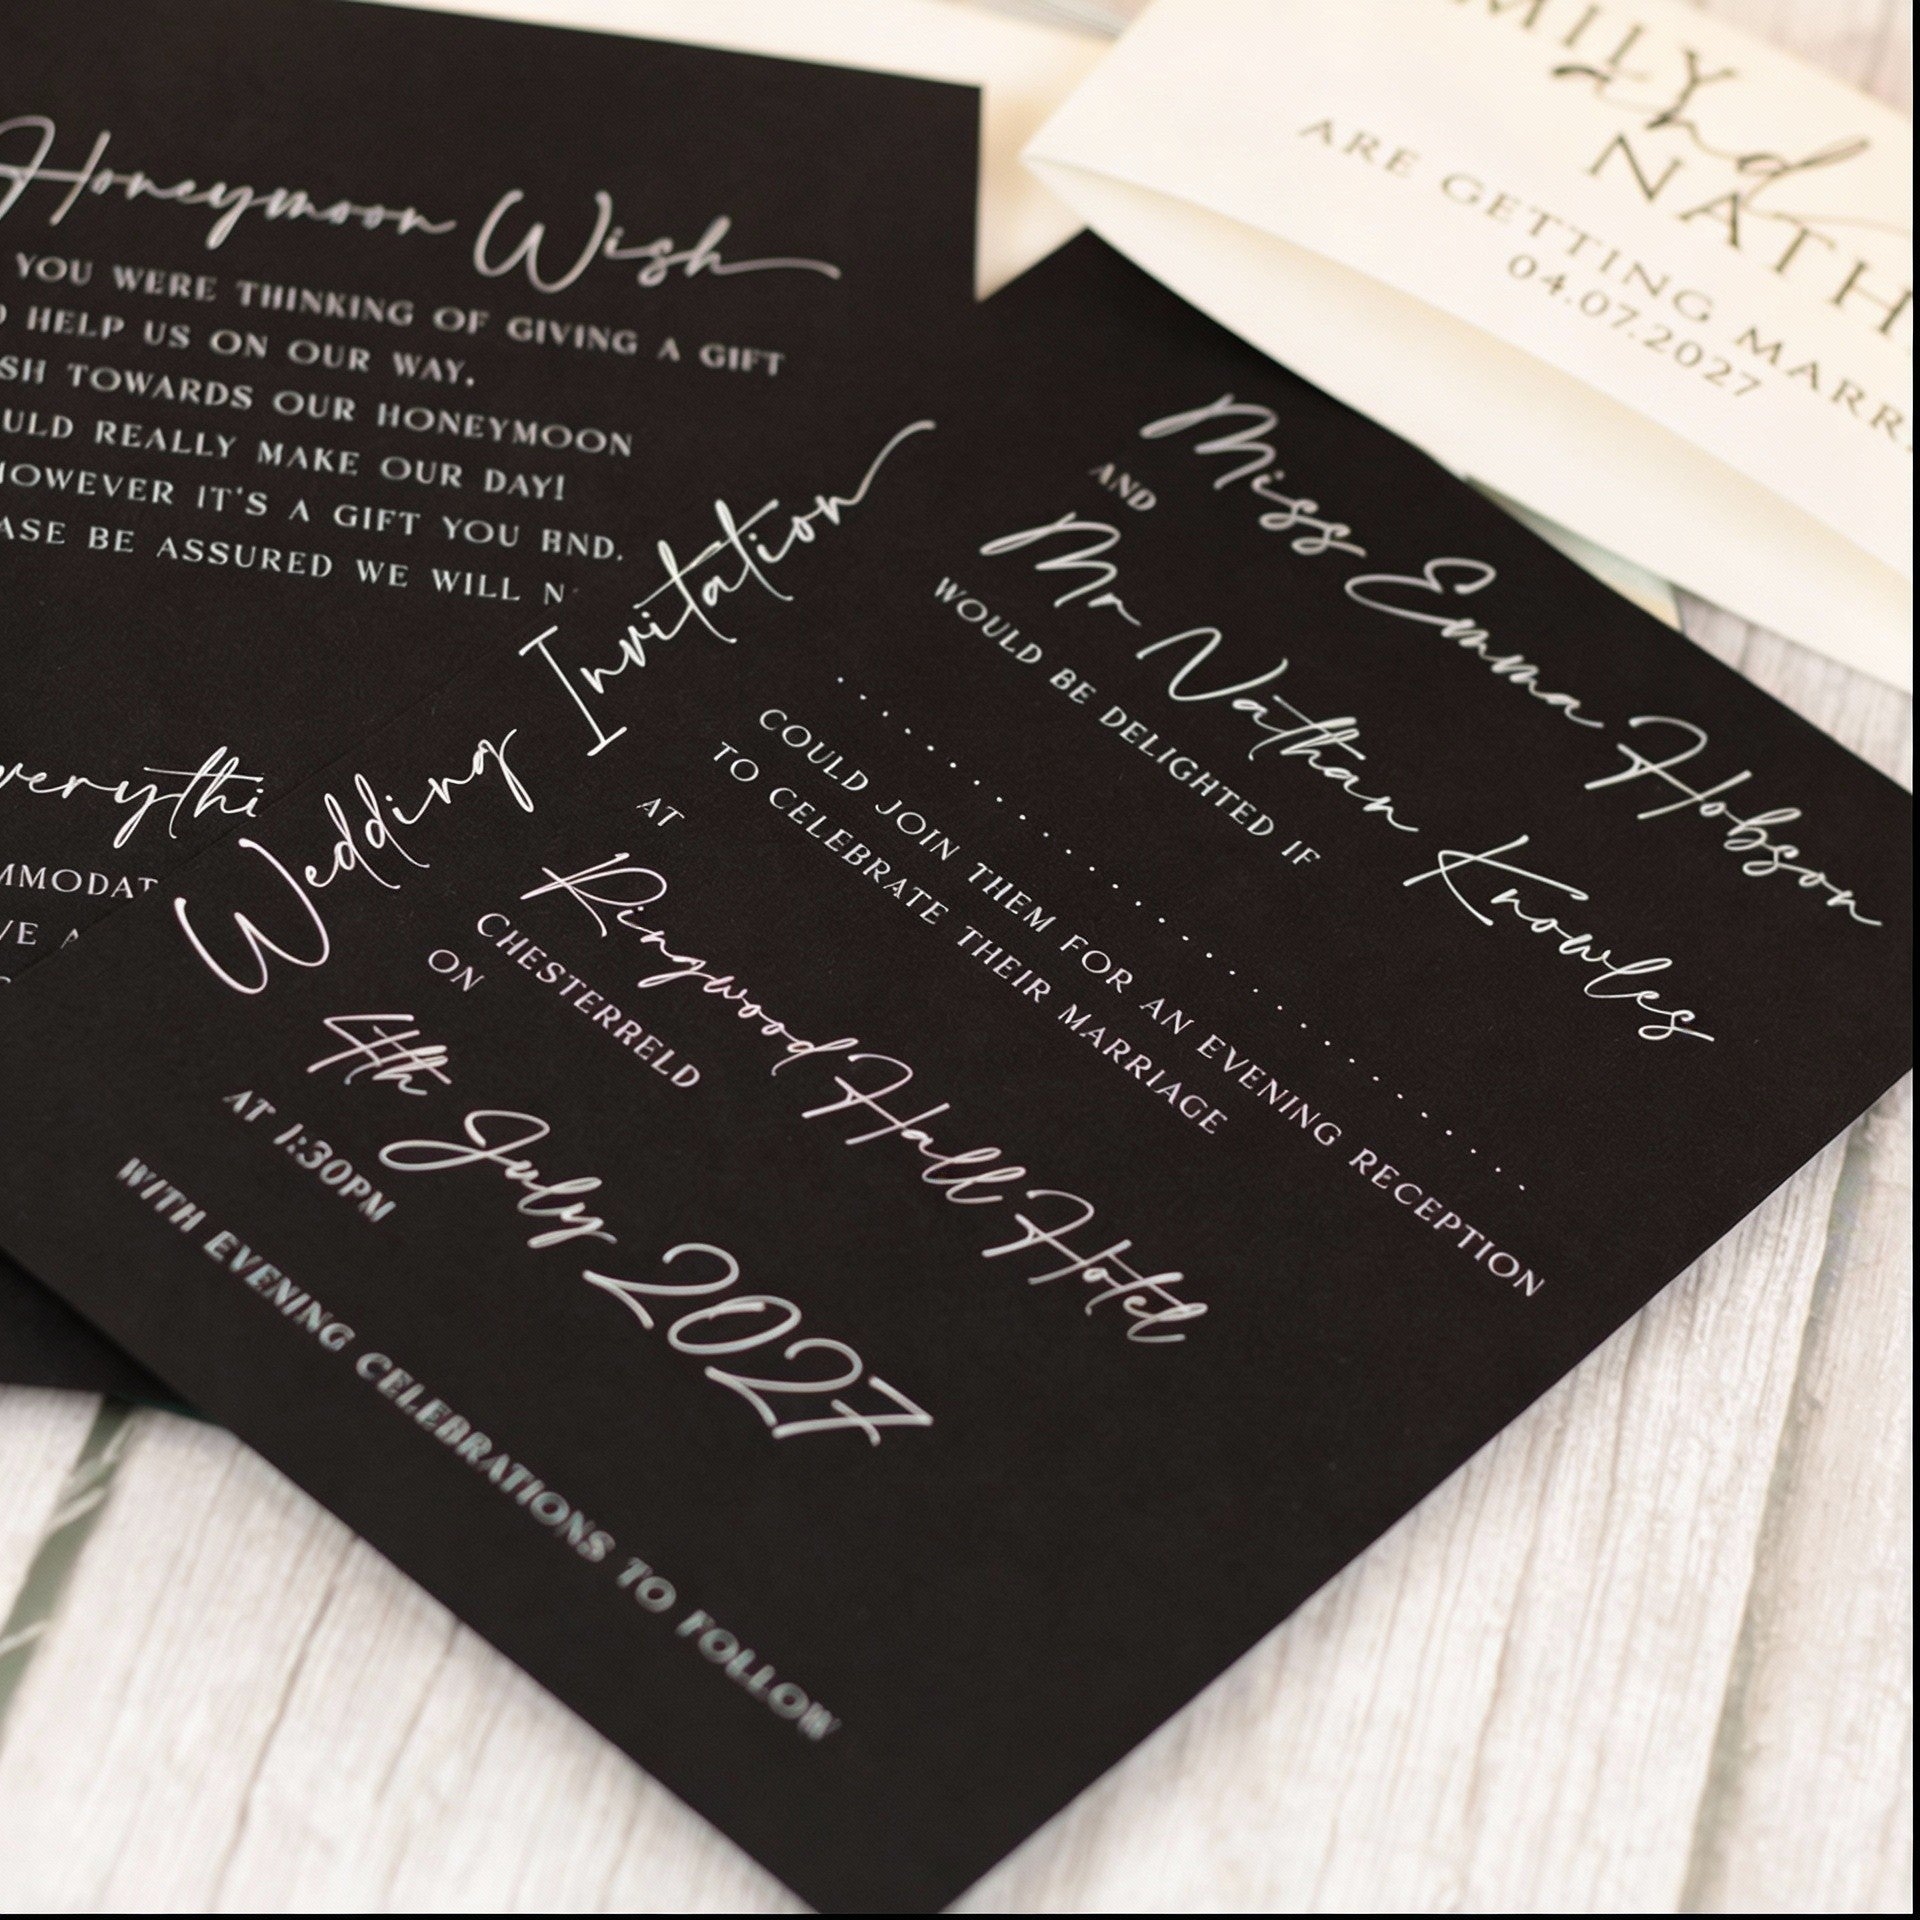 Honeymoon Wish
YOU WERE THINKING OF GIVING A GIFT
HELP US ON OUR WAY.
SH TOWARDS OUR HONEYMOON
ULD REALLY MAKE OUR DAY!
HOWEVER IT'S A GIFT YOU
ASE BE ASSURED WE WILL N
verythi
MMODAT
VE A
Wedding Invitation
Miss Emma Hobson
AND
Mr Nathan Knowles
WOULD BE DELIGHTED IF
........................
COULD JOIN THEM FOR AN EVENING RECEPTION
TO CELEBRATE THEIR MARRIAGE
AT
Ringwood Hall Hotel
CHESTERRELD
ON
4th July 2027
AT 1:30PM
WITH EVENING CELEBRATIONS TO FOLLOW
MILY
and
NATH
ARE GETTING MARR
04.07.2027